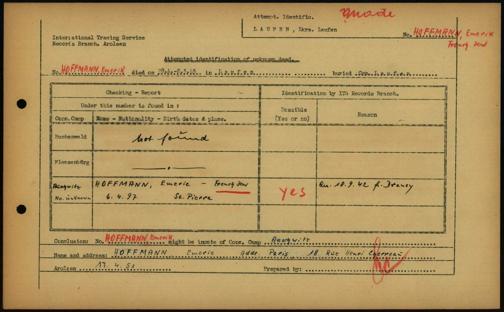 Attempt. Identific.
made
LAUFEN, Lkrs. Laufen
International Tracing Service
Records Branch, Arolsen
No. HOFFMANN, Emerik
French Jew
Attempted identification of unknown dead.
No. HOFFMANN Emerik died on in Laufen Buried Laufen
Checking - Report
Identification by ITS Records Branch.
Under this number is found in :
Possible
(Yes or no)
Reason
Conc. Camp Name - Nationality - Birth dates & place.
Buchenwald not found
Flossenbürg
Auschwitz HOFFMANN, Emeric - French Jew yes 18.9.42 f. Drancy
No. unknown 6.4.97 St. Pierre
Conclusion: No. HOFFMANN Emerik might be inmate of Conc. Camp Auschwitz
Name and address: HOFFMANN Emeric addr. Paris 18 Rue Henri
Arolsen 17.4.51 Prepared by: